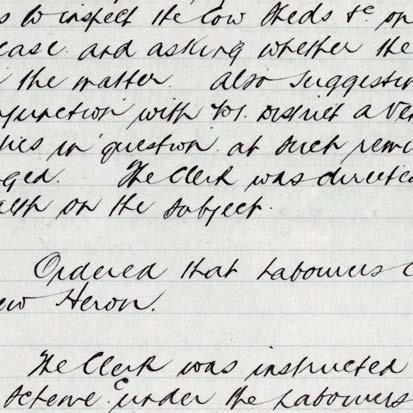 s to inspect the Cow Sheds &c on
ease and asking whether the
the matter. Also suggestin
njunction with District a Ve
in question at such remu
ged. The Clerk was directed
alth on the subject.
Ordered that Labourers C
ew Heron.
The Clerk was instructed
Scheme under the Labourers